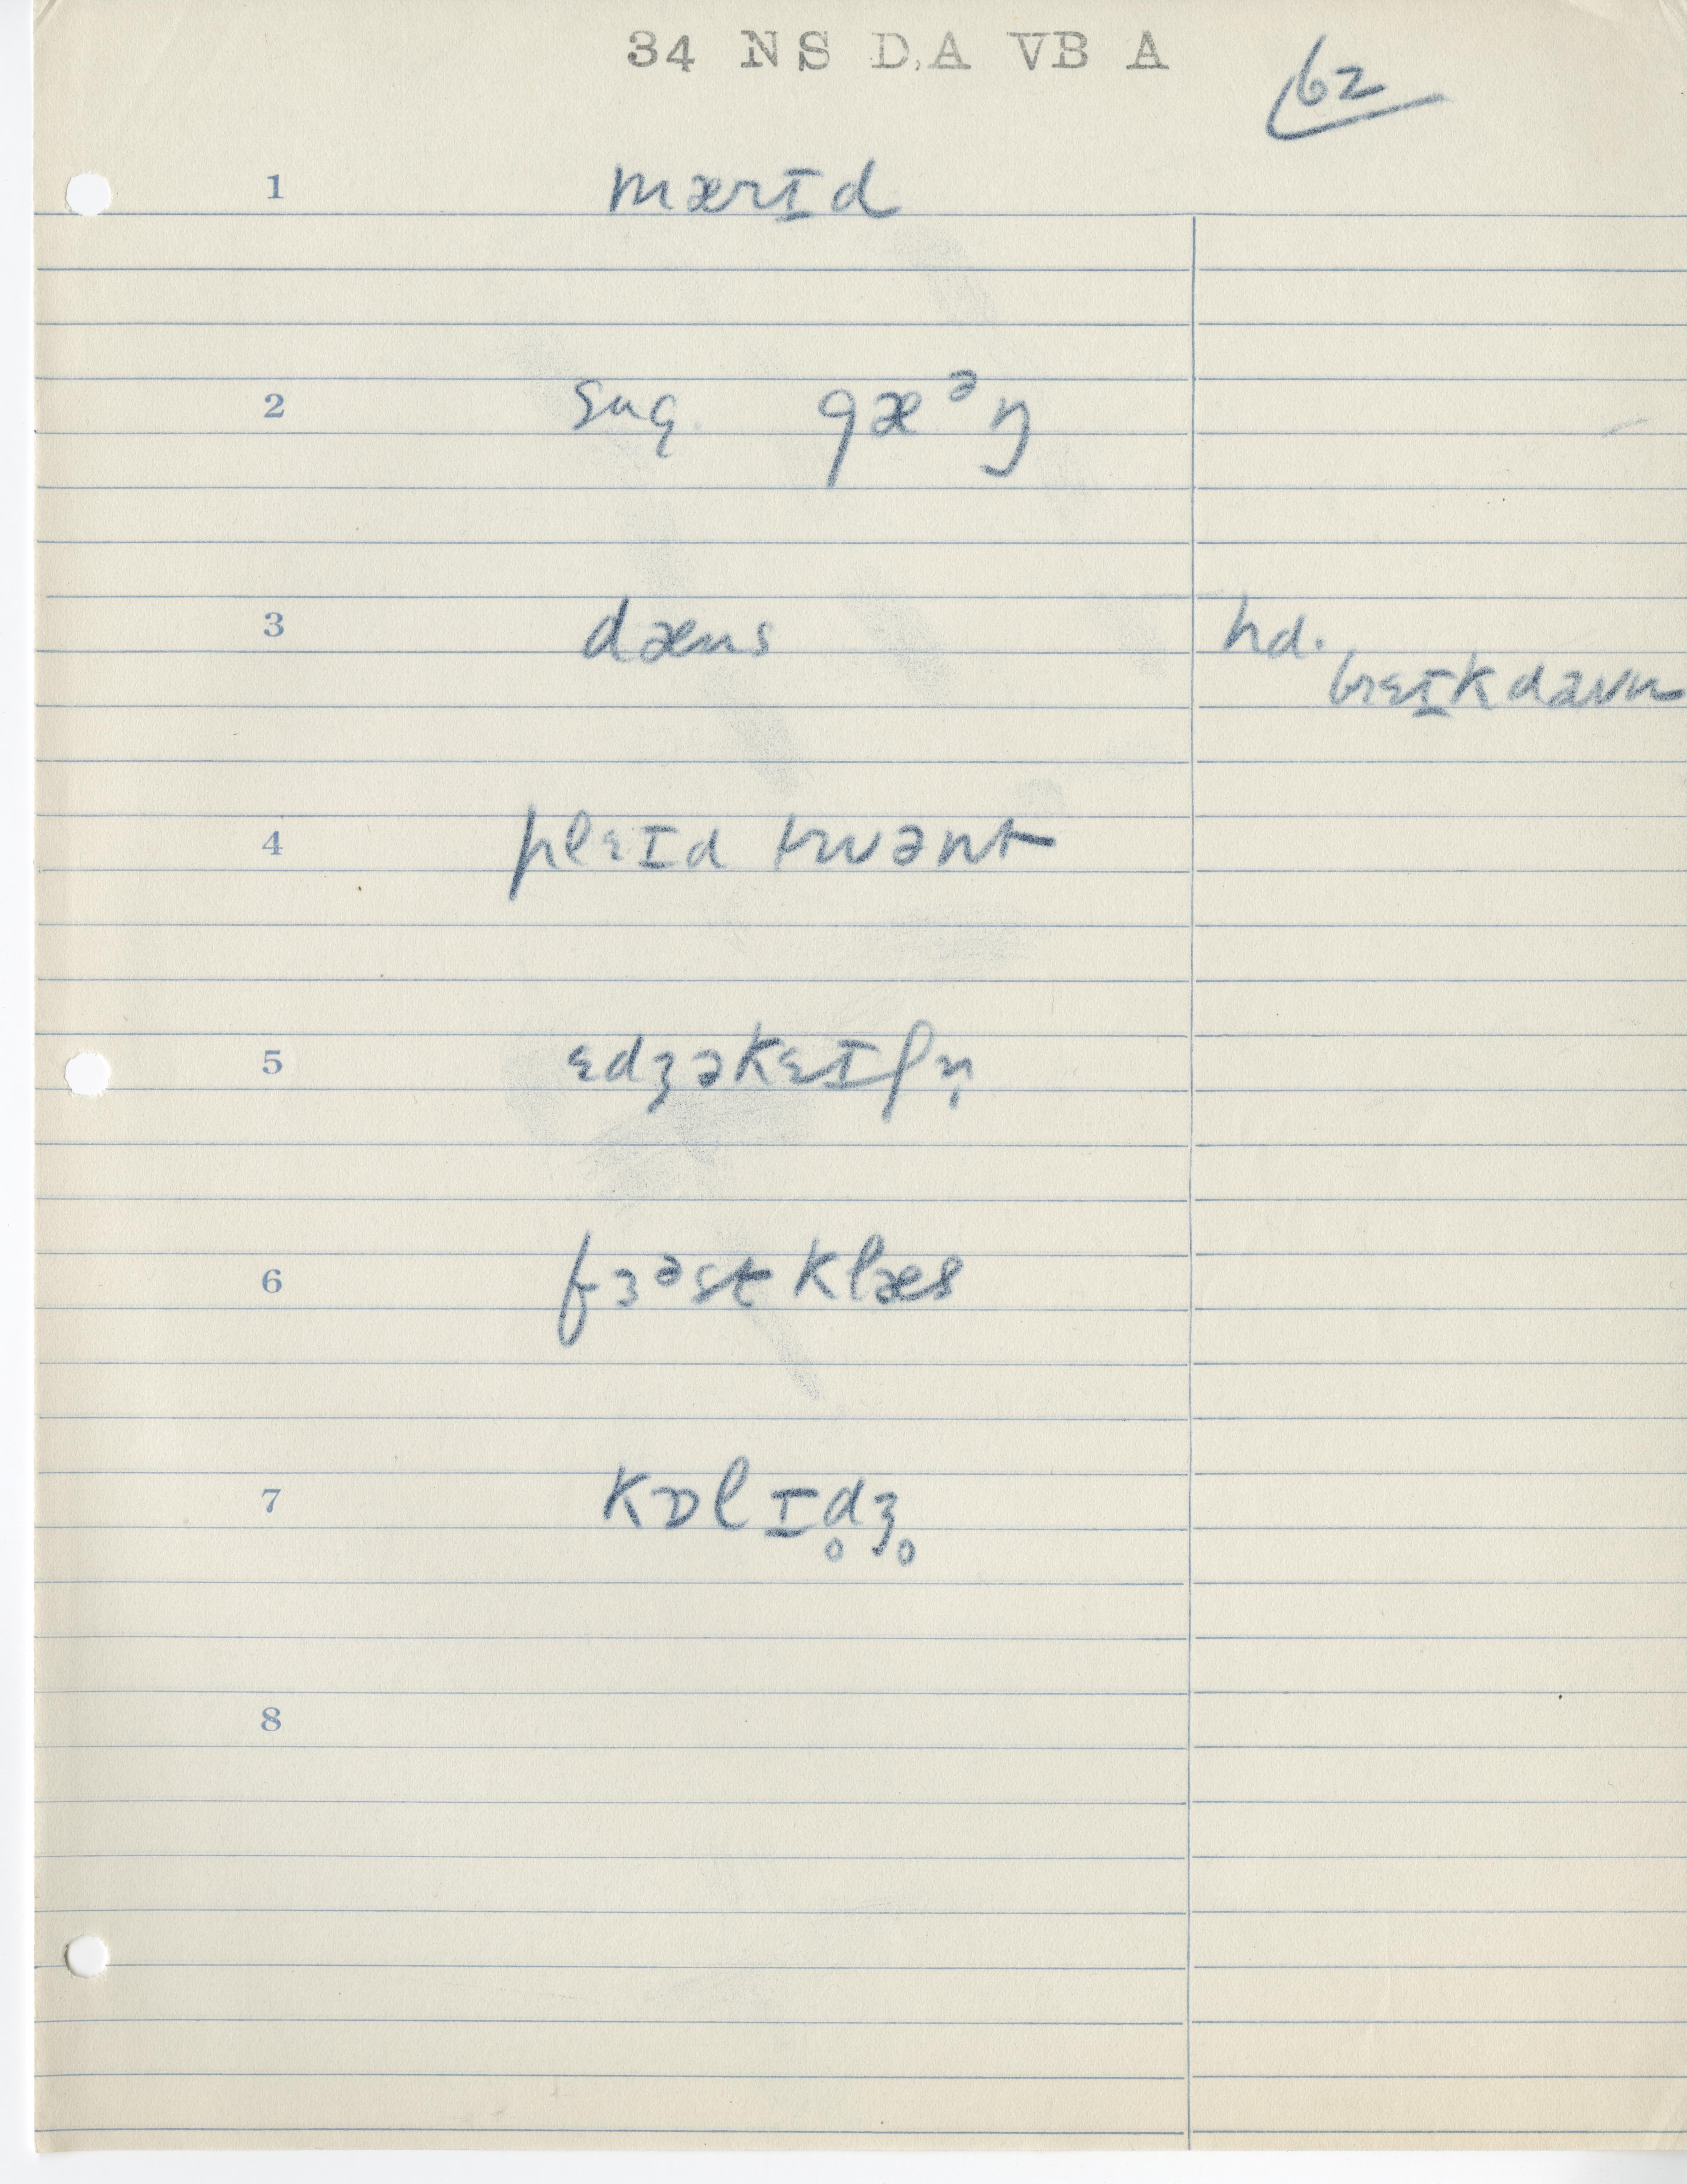 34 NS DA VB A
62
1 mærɪd
2 sug. gæᵊŋ
3 dæns hd.
brɛɪkdaʊn
4 plɛɪd trwənt
5 ɛdʒəkɛɪʃn̩
6 fɜᵊst klæs
7 kɒlɪd̥ʒ̥
8